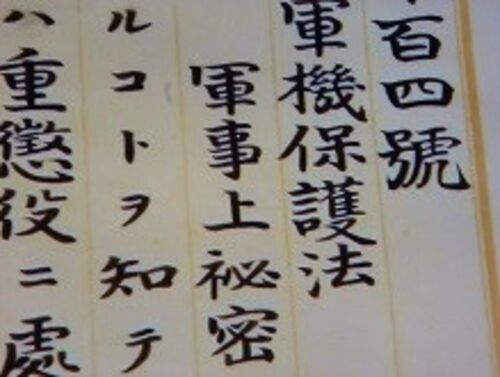 百四號
軍機保護法
軍事上祕密
ルコトヲ知テ
ハ重懲役ニ處